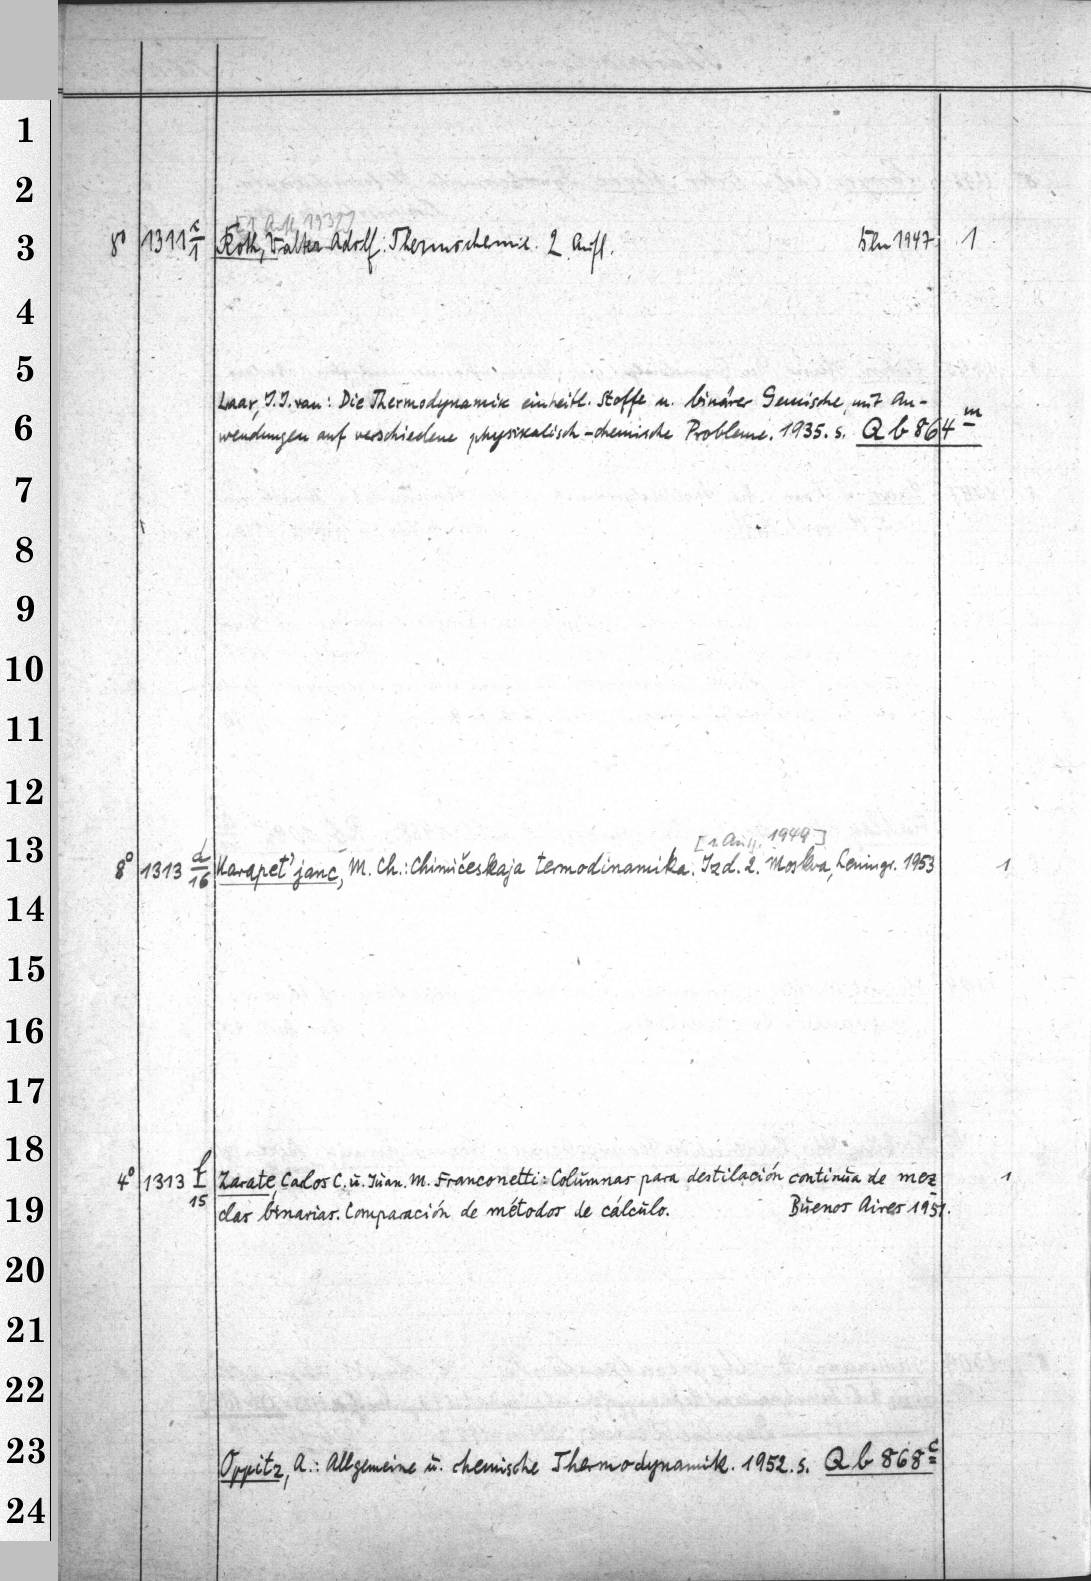 1
2
3
4
5
6
7
8
9
10
11
12
13
14
15
16
17
18
19
20
21
22
23
24
[1. Aufl. 1932]
8° 1311 c/1 Roth, Walter Adolf: Thermochemie. 2. Aufl. 1947. 1
Laar, J. J. van: Die Thermodynamik einheitl. Stoffe u. binärer Gemische, mit An-
wendungen auf verschiedene physikalisch-chemische Probleme. 1935. s. Q b 864 m
[1. Ausg. 1949]
8° 1313 d/16 Karapet'janc, M. Ch.: Chimičeskaja termodinamika. Izd. 2. Moskva, Leningr. 1953 1
4° 1313 f/15 Zarate, Carlos C. u. Juan. M. Franconetti: Columnas para destilación continua de mez-
clas binarias. Comparación de métodos de cálculo. Buenos Aires 1951. 1
Oppitz, A.: Allgemeine u. chemische Thermodynamik. 1952. s. Q b 868 c